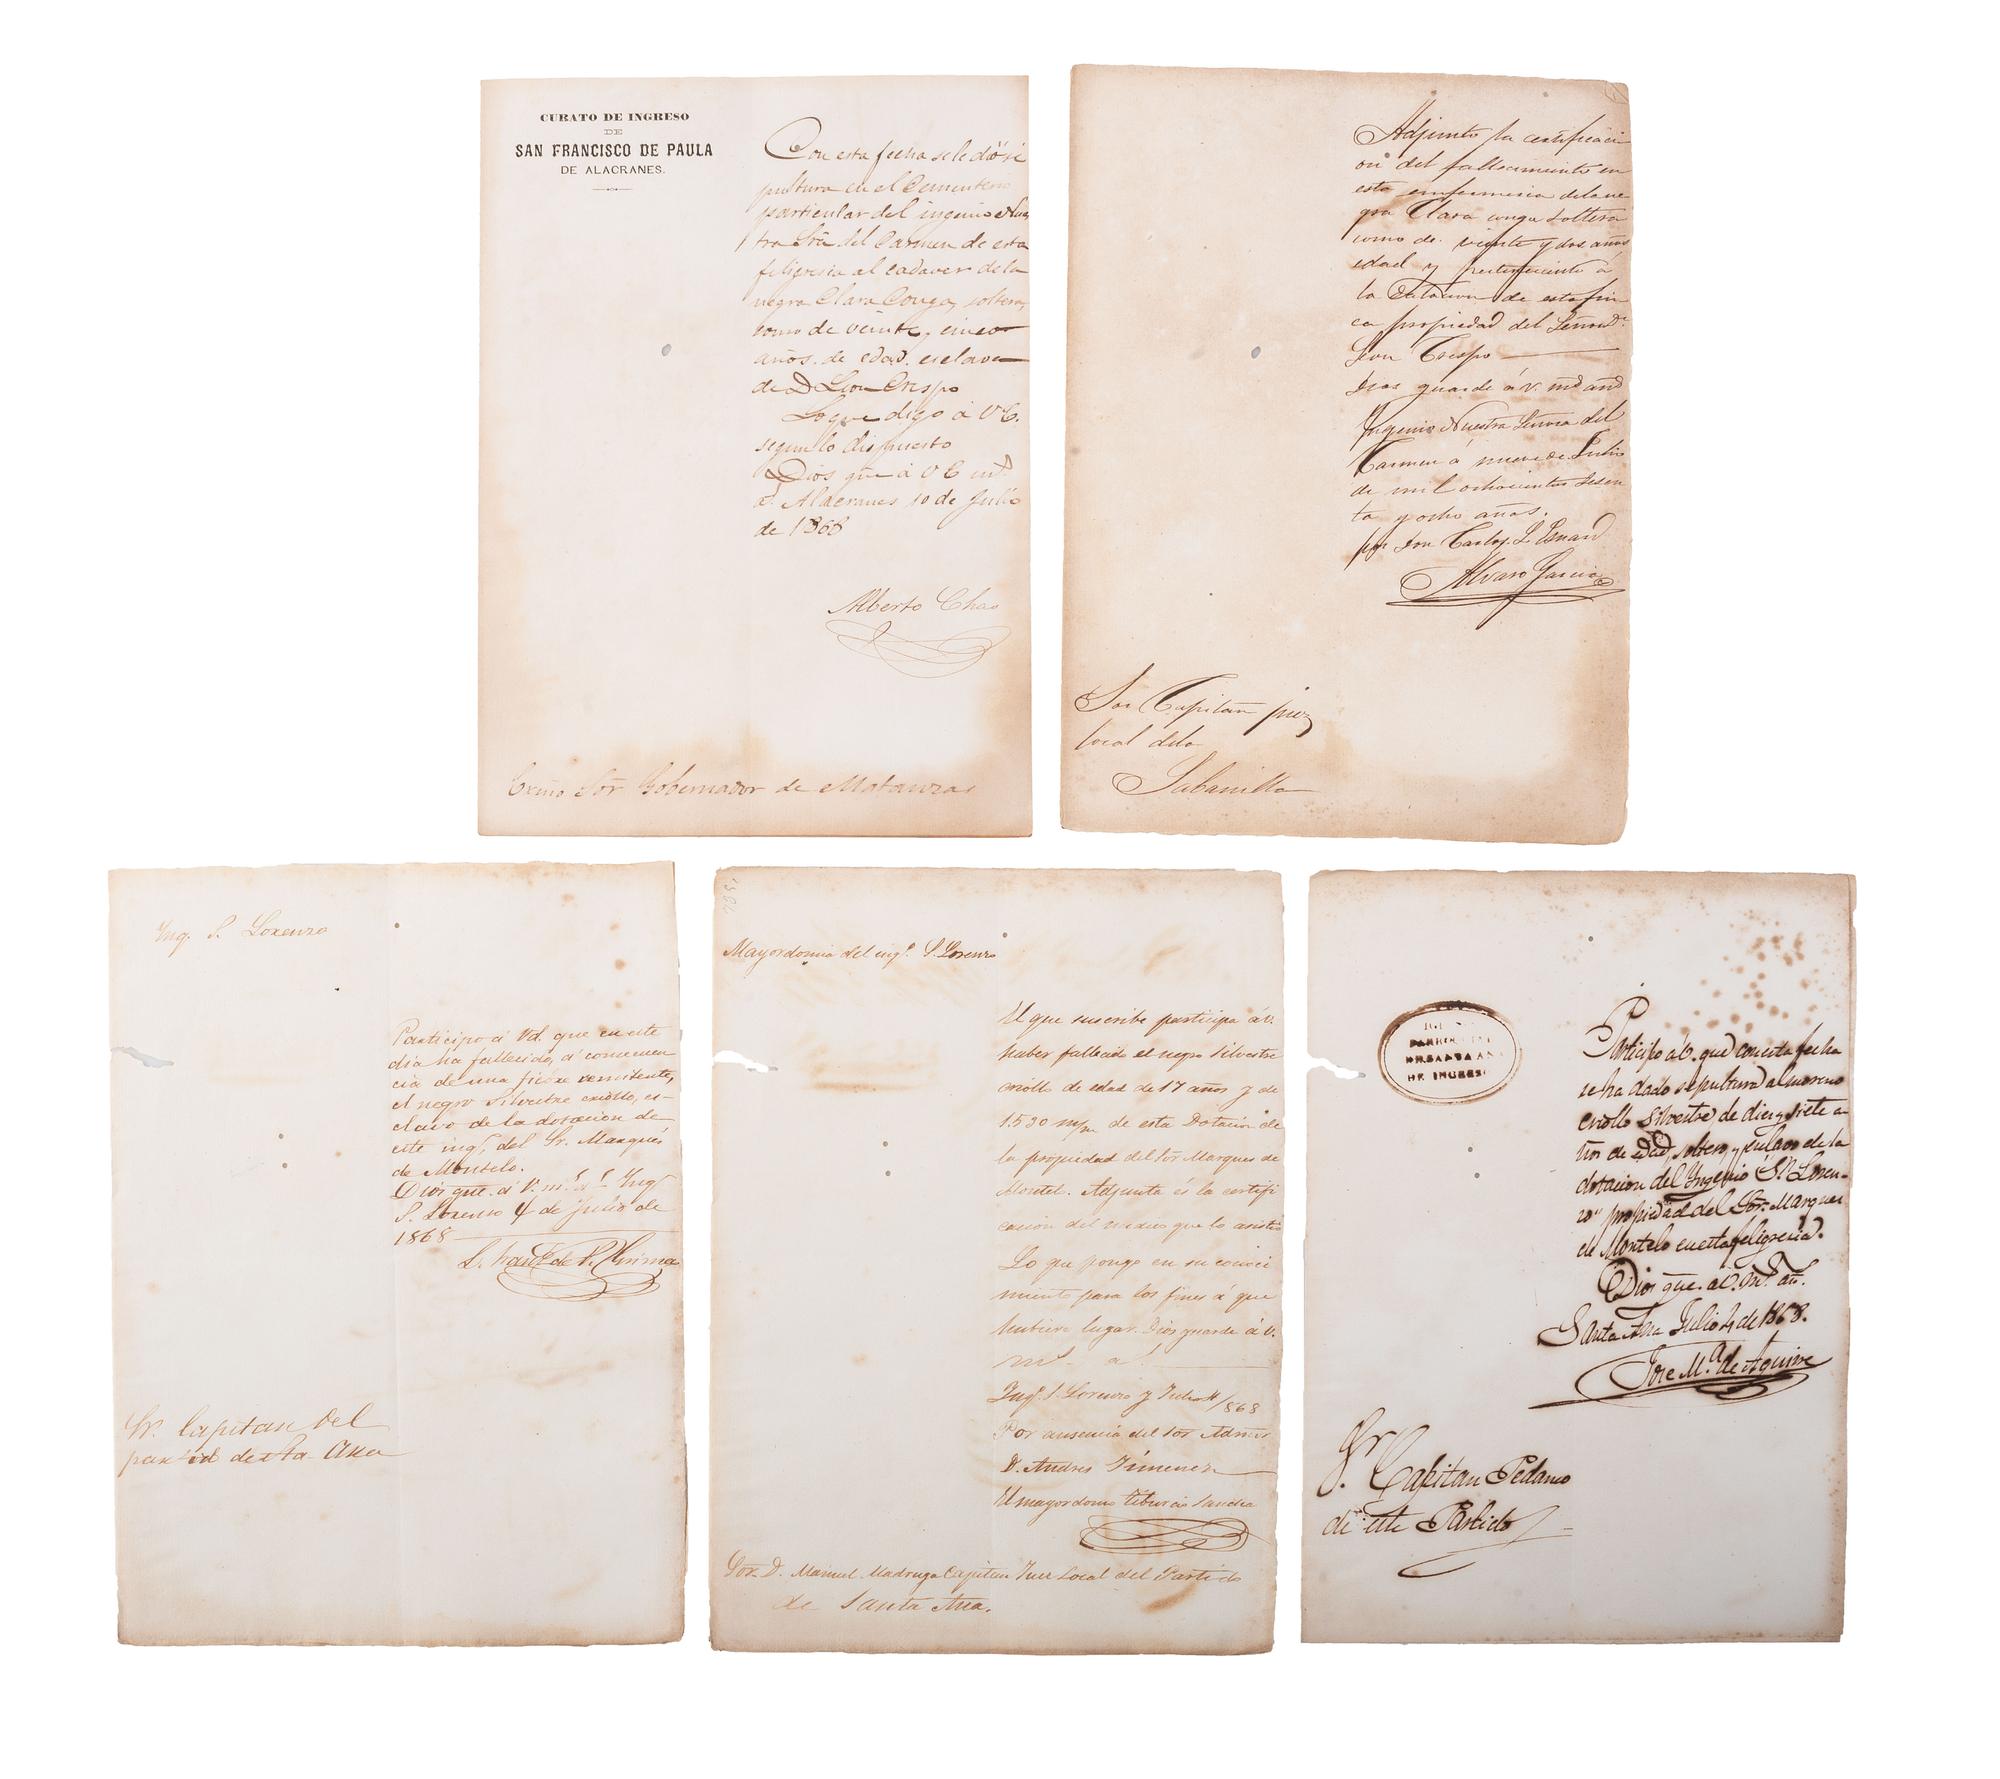 CURATO DE INGRESO
DE
SAN FRANCISCO DE PAULA
DE ALACRANES.
Con esta fecha se le dió se
pultura en el Cementerio
particular del ingenio Nues
tra Srã del Carmen de esta
feligresia al cadaver de la
negra Clara Conga, soltera,
como de veinte y cinco
años de edad esclava
de D Leon Crespo
Lo que digo á V E.
segun lo dispuesto
Dios gũe á V E
Alacranes 10 de Julio
de 1868
Alberto Chao
Exmo Sõr Gobernador de Matanzas
Adjunto la certificaci
on del fallecimiento en
esta enfermeria de la ne
gra Clara conga soltera
como de veinte y dos años
edad y perteneciente á
la dotacion de esta fin
ca propiedad del Señor Dn
Leon Crespo
Dios guarde á V. ms añs
Ingenio Nuestra Señora del
Carmen á nueve de Julio
de mil ochocientos sesen
ta y ocho años.
por Don Carlos L
Alvaro Garcia
Sor Capitan juez
local de la
Sabanilla
Ing. S. Lorenzo
Participo á Vd. que en este
dia ha fallecido, á consecuen
cia de una fiebre remitente,
el negro Silvestre criollo, es-
clavo de la dotacion de
este ingº, del Sr. Marqués
de Montelo.
Dios gue. á V. ms as Ingº
S. Lorenzo 4 de Julio de
1868
Sr. Capitan del
partid de Sta Ana
Mayordomia del ingº S. Lorenzo
El que suscribe participa á V.
haber fallecido el negro Silvestre
criollo de edad de 17 años y de
1530 de esta Dotacion de
la propiedad del Sor Marques de
Montel. Adjunta és la certifi
casion del medico que lo asistio
Lo que pongo en su conoci
miento para los fines á que
hubiere lugar. Dios guarde á V.
ms as
Ingº S. Lorenzo y Julio 4/868
Por ausencia del Sor Admor
D. Andres Jimenez
El mayordomo Tiburcio Sanchez
Sor. D. Manuel Madruga Capitan Juez Local del Partido
de Santa Ana.
PARROQUIAL
DE SANTA ANA
DE INGRESO
Participo a V. que con esta fecha
se ha dado sepultura al moreno
criollo Silvestre, de diez y siete a-
ños de edad, soltero, y esclavo de la
dotacion del Ingenio Sn Loren-
zo propiedad del Sor. Marques
de Montelo en esta feligresía.
Dios gue. a V. ms. as.
Santa Ana Julio 4 de 1868.
Jose Mª de Aguirre
Sr Capitan Pedaneo
de este Partido